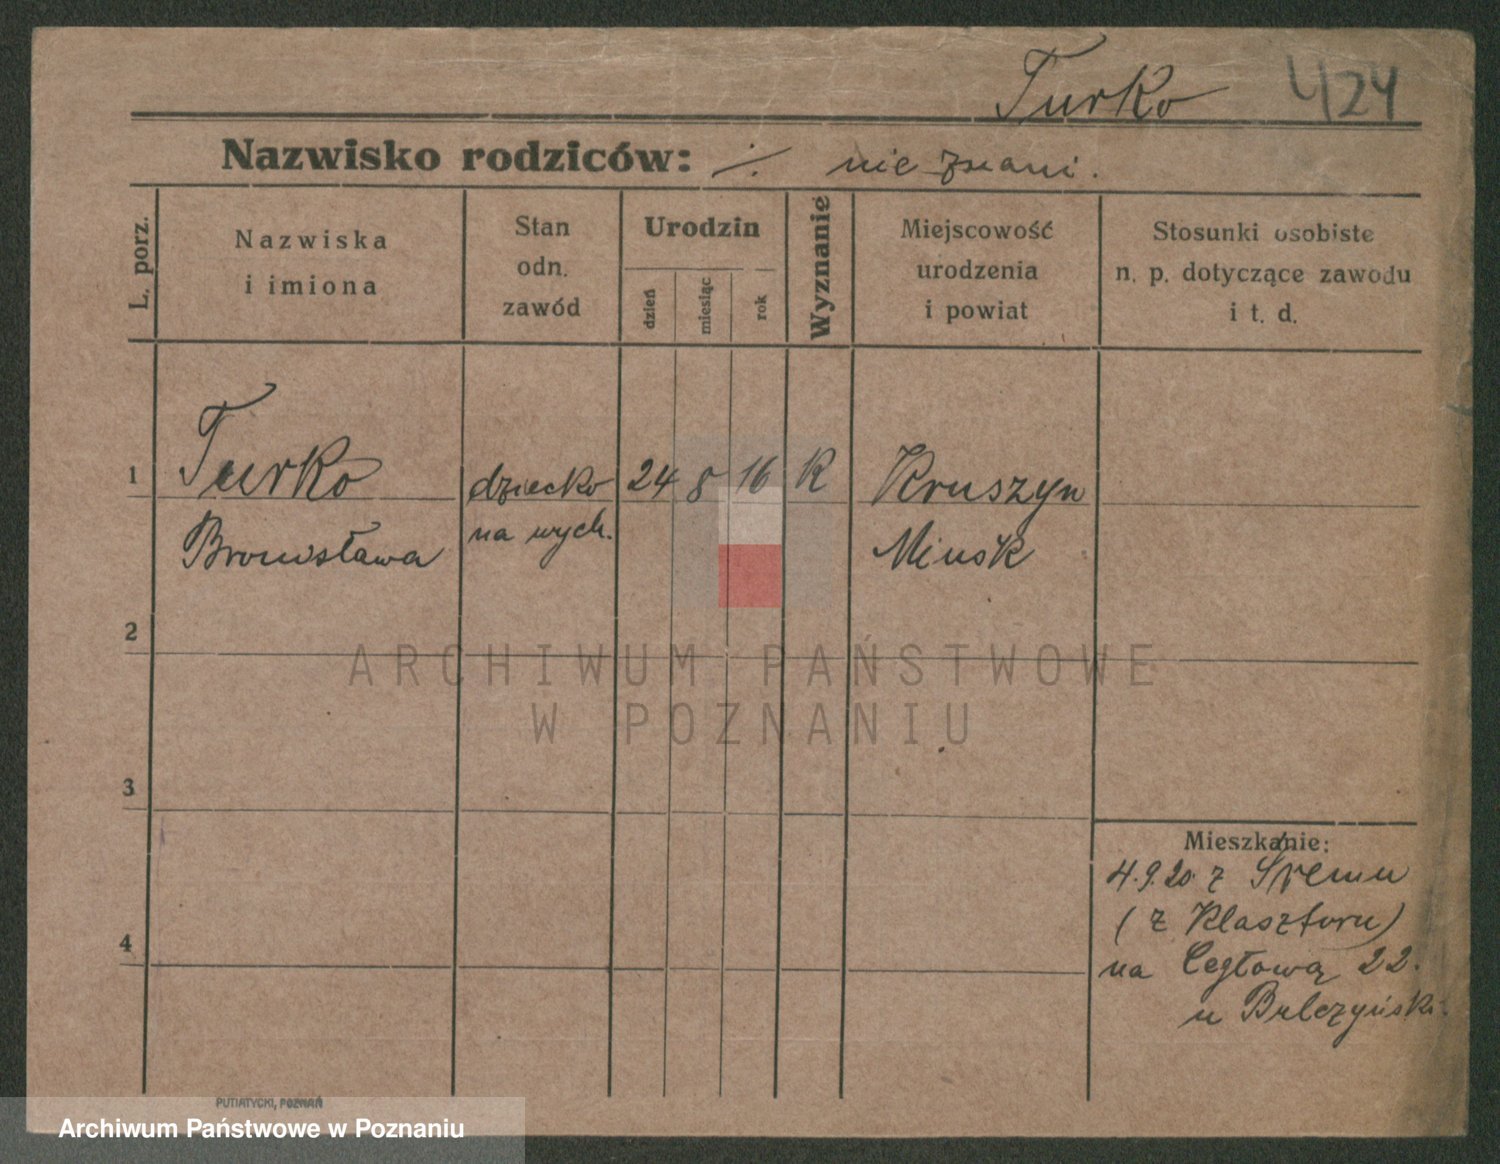 Turko 424
Nazwisko rodziców: ·/. nie znani.
L. porz.
Nazwiska
i imiona
Stan
odn.
zawód
Urodzin
dzień
miesiąc
rok
Wyznanie
Miejscowość
urodzenia
i powiat
Stosunki osobiste
n. p. dotyczące zawodu
i t. d.
1 Turko dziecko 24 8 16 K Kruszyn
Bronisława na wych. Minsk
2
ARCHIWUM PAŃSTWOWE
W POZNANIU
3
Mieszkanie:
4.9.20 z Śremu
(z Klasztoru)
4
na Cegłową 22.
u Bulczyński
PUTIATYCKI, POZNAŃ
Archiwum Państwowe w Poznaniu